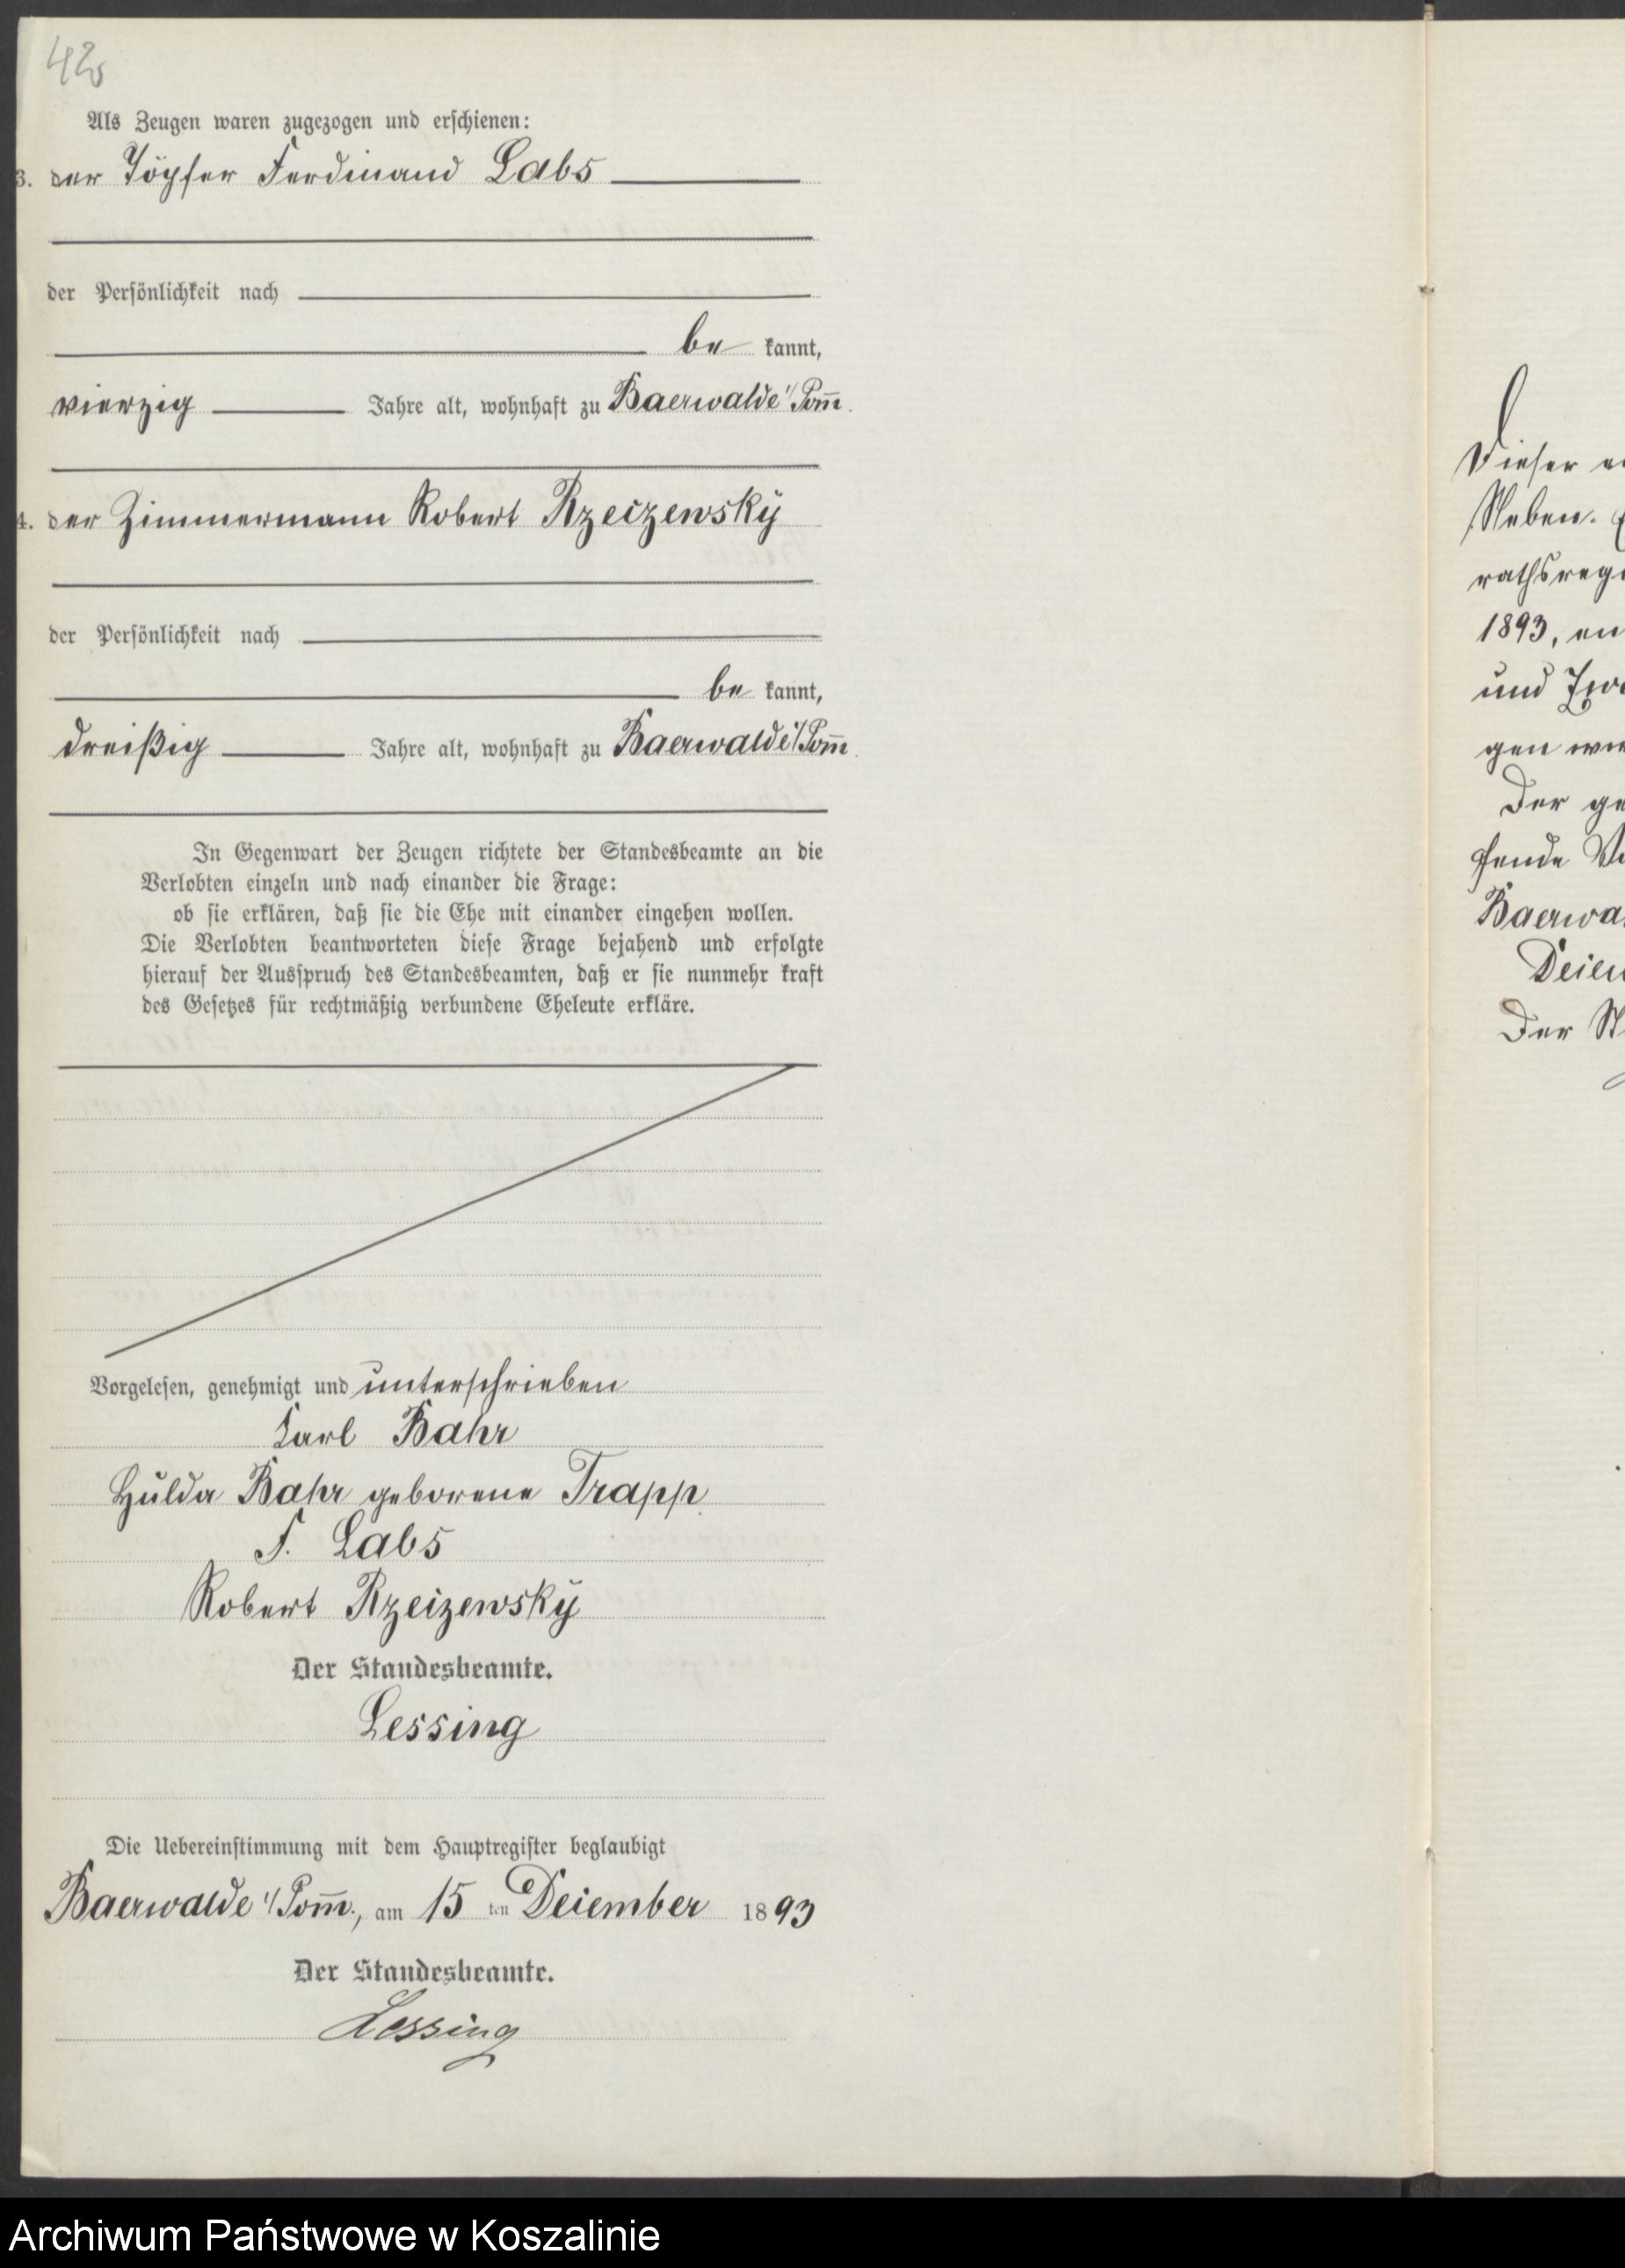 42
Als Zeugen waren zugezogen und erschienen:
3. der Töpfer Ferdinand Labs
der Persönlichkeit nach
be kannt,
vierzig Jahre alt, wohnhaft zu Baerwalde i/Pom̅.
4. der Zimmermann Robert Rzeczewsky
der Persönlichkeit nach
be kannt,
dreißig Jahre alt, wohnhaft zu Baerwalde i/Pom̅.
In Gegenwart der Zeugen richtete der Standesbeamte an die
Verlobten einzeln und nach einander die Frage:
ob sie erklären, daß sie die Ehe mit einander eingehen wollen.
Die Verlobten beantworteten diese Frage bejahend und erfolgte
hierauf der Ausspruch des Standesbeamten, daß er sie nunmehr kraft
des Gesetzes für rechtmäßig verbundene Eheleute erkläre.
Vorgelesen, genehmigt und unterschrieben
Karl Bahr
Hulda Bahr geborene Trapp
F. Labs
Robert Rzeizewsky
Der Standesbeamte.
Lessing
Die Uebereinstimmung mit dem Hauptregister beglaubigt
Baerwalde i/Pom̅., am 15 ten Dezember 1893
Der Standesbeamte.
Lessing
Dieser
Neben.
rathsreg
1893, en
und Zwe
gen
Der ge
fende
Baerwa
Dezem
Der St
Archiwum Państwowe w Koszalinie